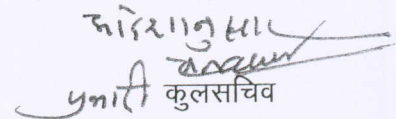 आदेशानुसार
प्रभारी कुलसचिव